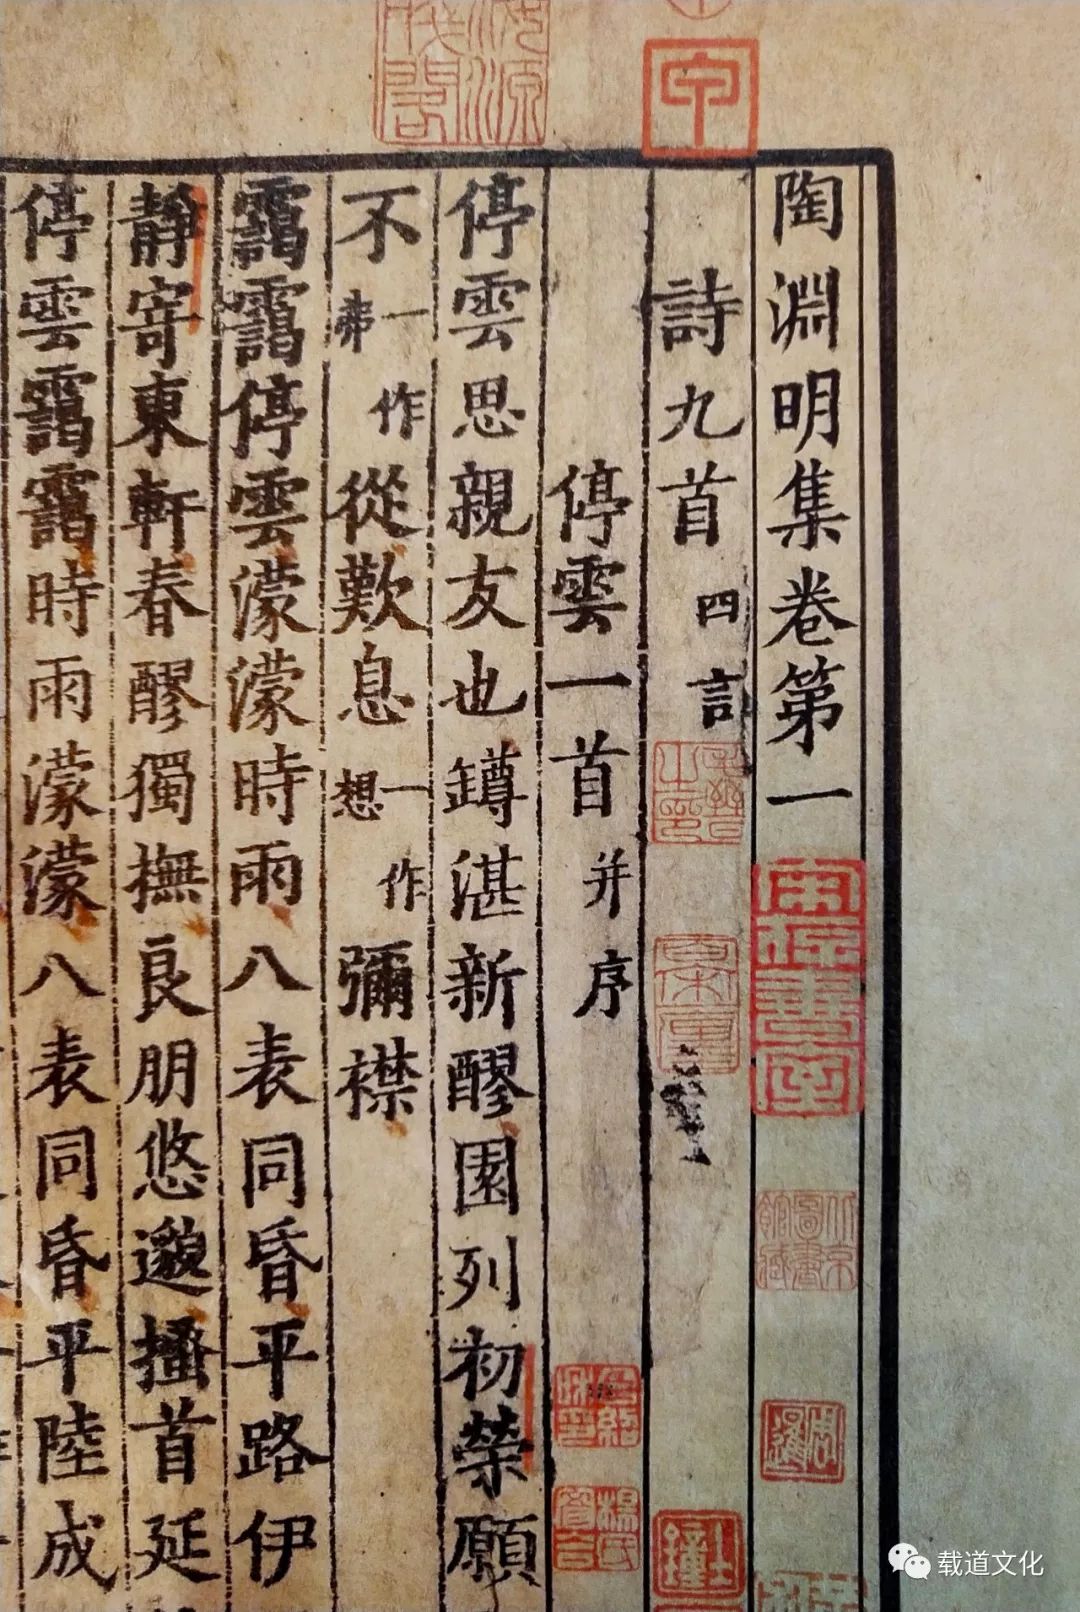 陶淵明集卷第一
詩九首四言
停雲一首并序
停雲思親友也罇湛新醪園列初榮願
不一作弗從歎息一作想彌襟
靄靄停雲濛濛時雨八表同昏平路伊
靜寄東軒春醪獨撫良朋悠邈搔首延
停雲靄靄時雨濛濛八表同昏平陸成
宋存書室
北京圖書館藏
周暹
楊紹和印
载道文化